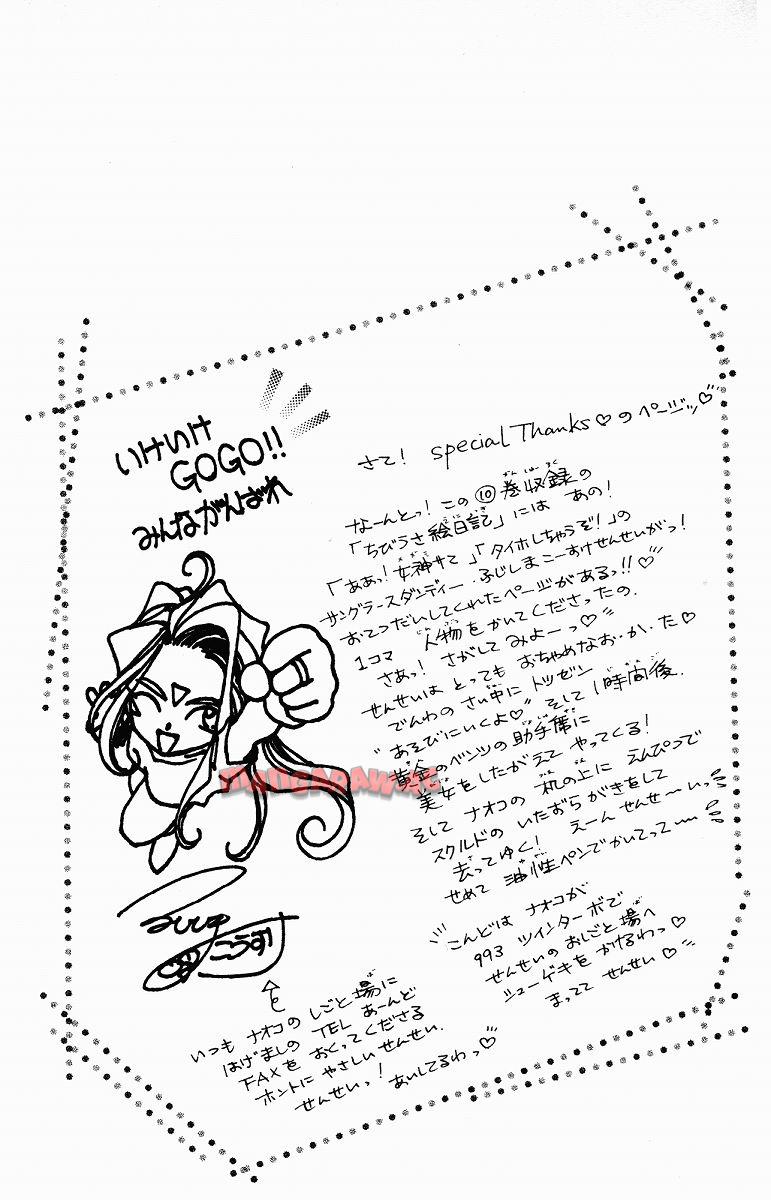 いけいけ
GOGO!!
みんながんばれ
さて! special Thanks♡のページッ♡
なーんとっ!この⑩巻収録の
「ちびうさ絵日記」には あの!
「ああっ!女神サマ」「タイホしちゃうぞ!」の
サングラースダンディー・ふじしまこーすけせんせいがっ!
おてつだいしてくれたページがあるっ!!♡
1コマ 人物をかいてくださったの.
さあっ! さがしてみよーっ♡
せんせいは とっても おちゃめなお・か・た♡
でんわの さい中に トツゼン
"あそびにいくよ♡" そして 1時間後.
黄金のベンツの助手席に
美女をしたがえて やってくる!
そして ナオコの 机の上に えんぴつで
スクルドの いたずらがきをして
去ってゆく! えーん せんせ〜いっ
せめて 油性ペンでかいてって〜
こんどは ナオコが
993 ツインターボで
せんせいの おしごと場へ
シューゲキを かけるわっ♡
まってて せんせい♡
こうすけ
いつも ナオコの しごと場に
はげましの TEL あーんど
FAXを おくってくださる
ホントに やさしい せんせい.
せんせいっ! あいしてるわっ♡
MANGARAWING